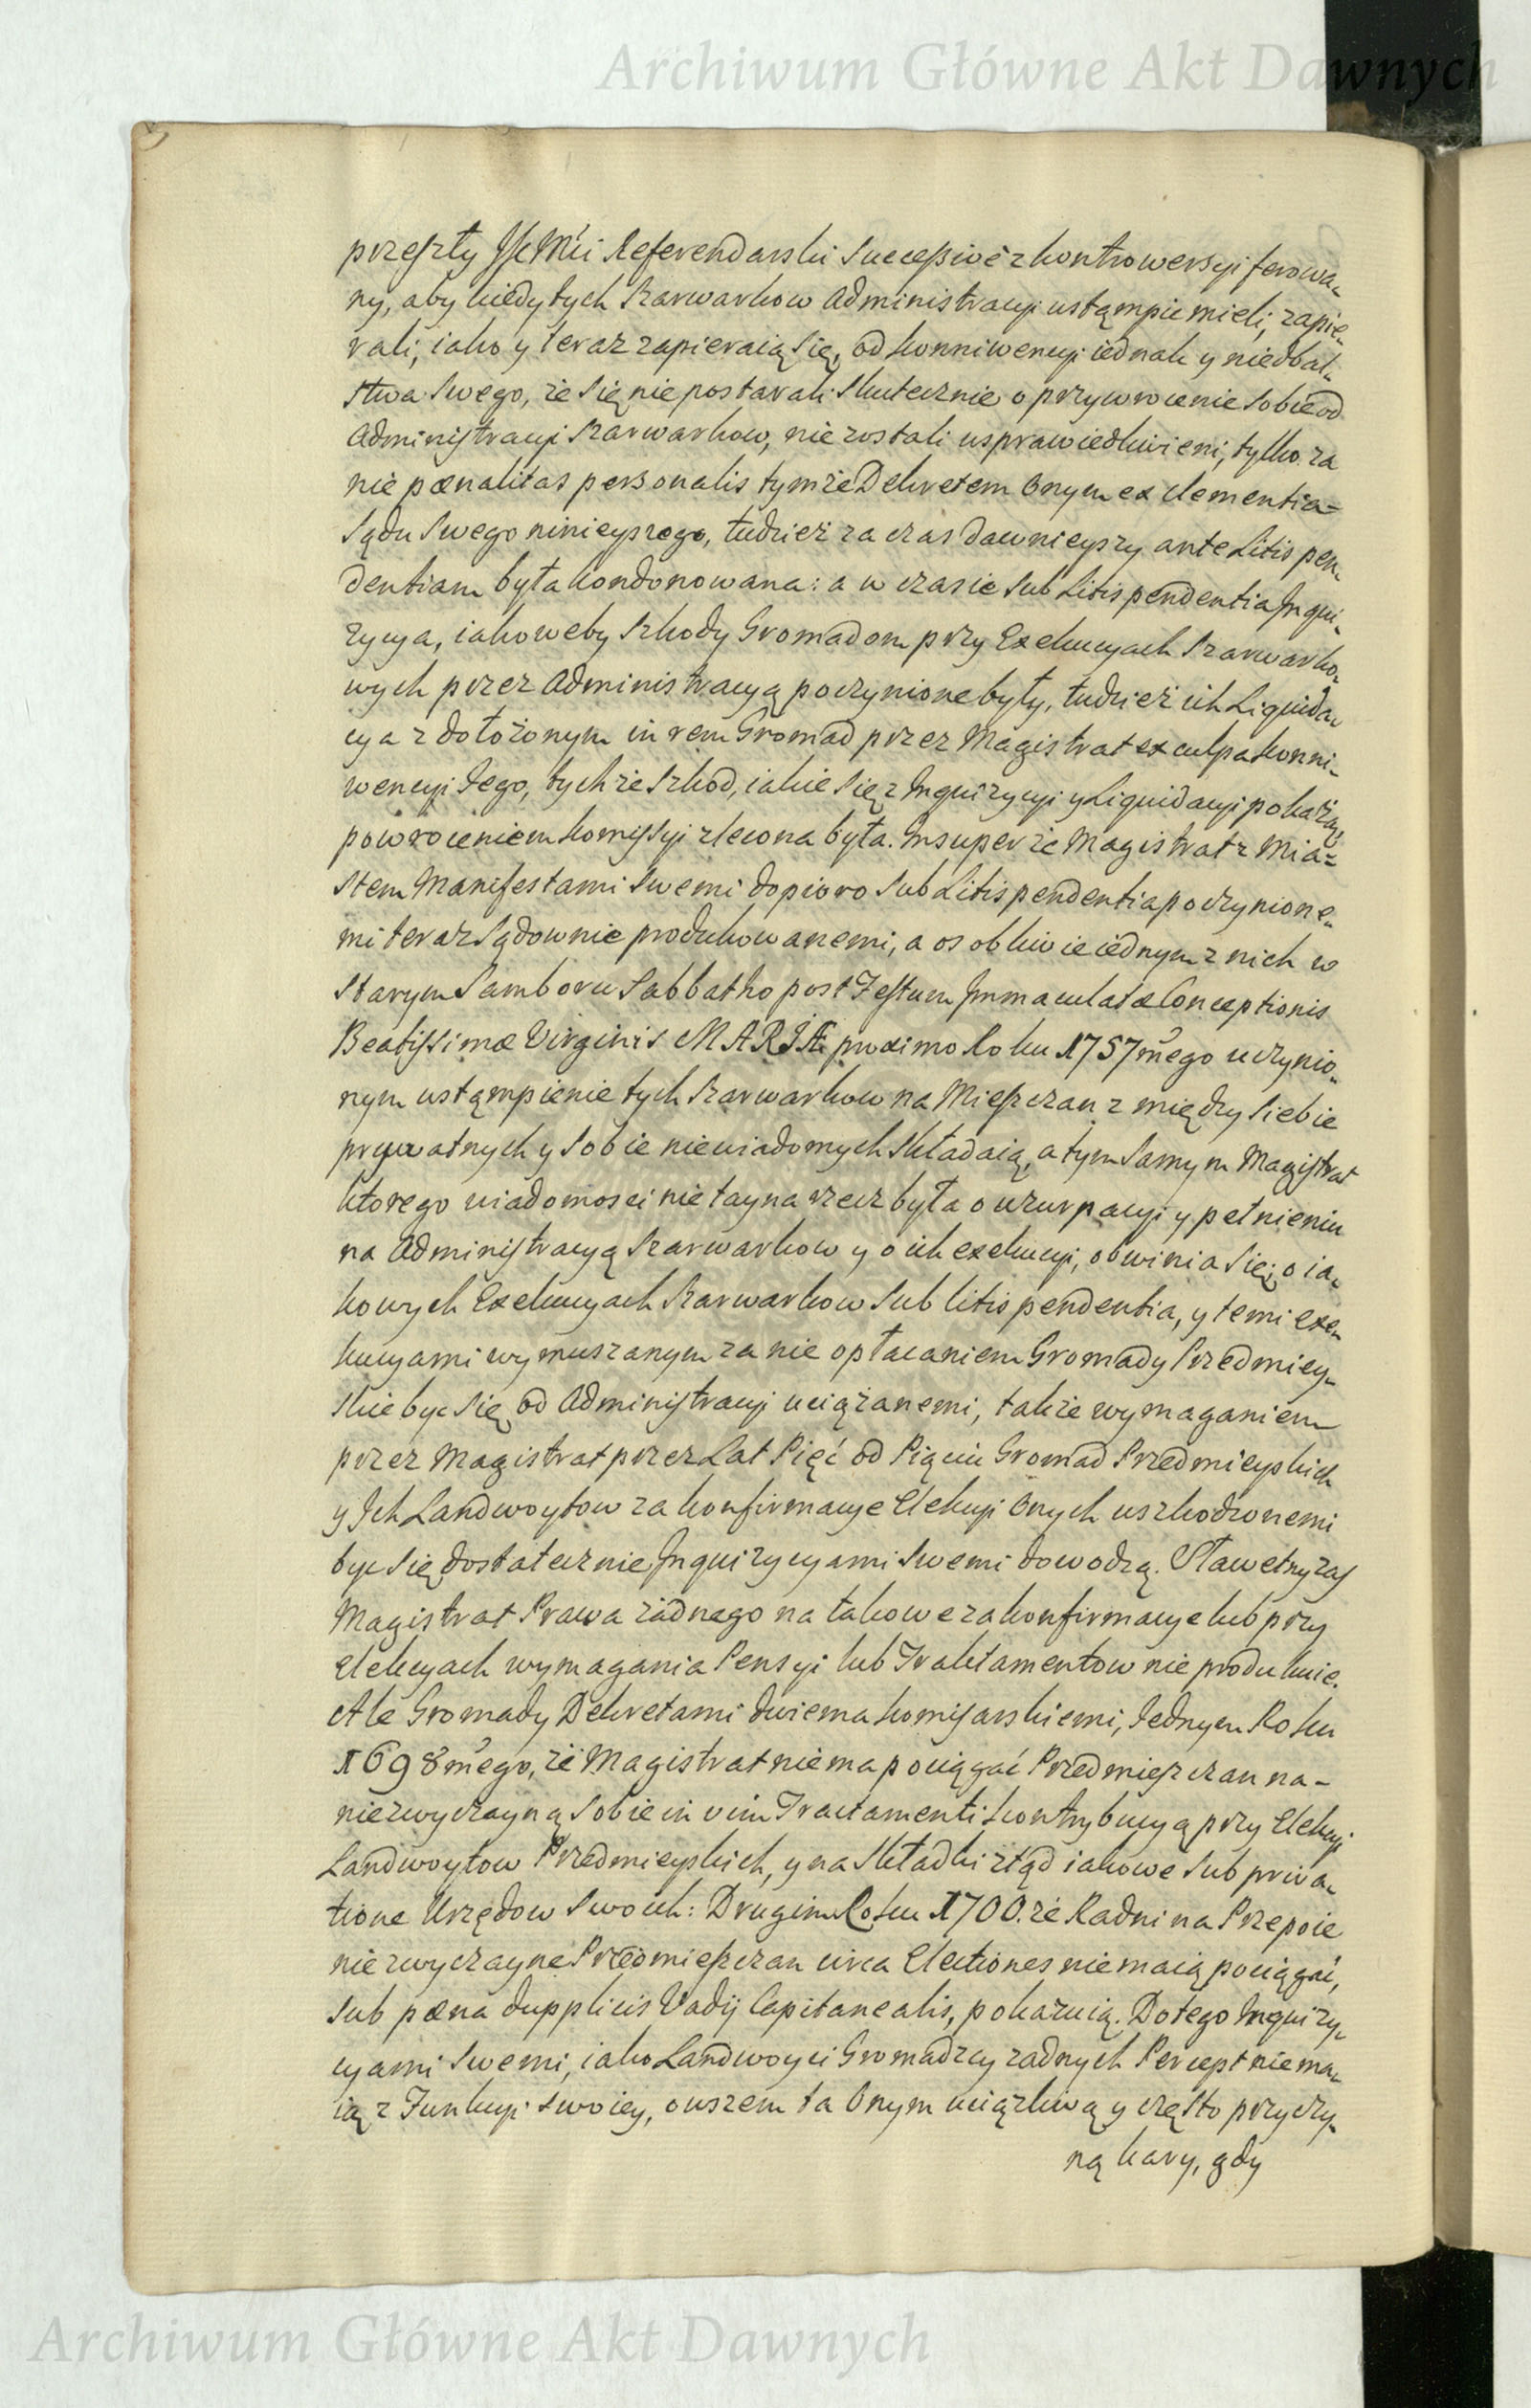 Archiwum Główne Akt Dawnych
przeszły JchMći Referendarski Successivè z kontrowersyi ferowa„
ny, aby kiedy tych Szarwarkow Administracyi ustąmpić mieli, zapie„
rali, iako y teraz zapieraią się, od konniwencyi iednak y niedbal„
stwa Swego, że się nie postarali Skutecznie o przywrocenie Sobie od
Administracyi Szarwarkow, nie zostali usprawiedliwieni, tylko za
nie pœnalitas personalis tymże Dekretem Onym ex Clementia
Sądu Swego ninieyszego, tudzież za czas dawnieyszy ante Litis pen„
dentiam była kondonowana: a w czasie Sub Litis pendentia Inqui„
zycya, iakoweby Szkody Gromadom przy Exekucyach Szarwarko„
wych przez Administracyą poczynione były, tudzież ich Liquida„
cya z dołożonym in rem Gromad przez Magistrat ex culpa konni„
wencyi Jego, tychże Szkod, iakie się z Inquizycyi y Liquidacyi pokażą,
powroceniem Komissyi zlecona była. Insuper że Magistrat z Mia„
stem Manifestami Swemi dopiero Sub Litis pendentia poczynione„
mi teraz Sądownie produkowanemi, a osobliwie iednym z nich w
Starym Samboru Sabbatho post Festum Immaculatæ Conceptionis
Beatissimæ Virginis MARIÆ proximo Roku 1757mego uczynio„
nym ustąmpienie tych Szarwarkow na Mieszczan z między Siebie
prywatnych y Sobie niewiadomych Składaią, a tym Samym Magistrat
ktorego wiadomosci nie tayna rzecz była o uzurpacyi y pełnieniu
na Administracyą Szarwarkow y o ich exekucyi, obwinia Się; o ia„
kowych Exekucyach Szarwarkow Sub litis pendentia, y temi exe„
kucyami wymuszanym za nie opłacaniem Gromady Przedmiey„
skie byc Się od Administracyi uciążanemi, także wymaganiem
przez Magistrat przez Lat Pięć od Pięciu Gromad Przedmieyskich
y Ich Landwoytow za konfirmacye Elekcyi Onych uszkodzonemi
byc Się dostatecznie Inquizycyami Swemi dowodzą. Sławetny zaś
Magistrat Prawa żadnego na takowe za konfirmacye lub przy
elekcyach wymagania Pensyi lub Traktamentow nie produkuie.
Ale Gromady Dekretami dwiema Komisarskiemi, Jednym Roku
1698mego, że Magistrat nie ma pociągać Przedmieszczan na
niezwyczayną Sobie in vim Tractamenti kontrybucyą przy Elekcyi
Landwoytow Przedmieyskich, y na Składki ztąd iakowe Sub priva„
tione Urzędow Swoich: Drugim Roku 1700. że Radni na Przepoie
niezwyczayne Przedmieszczan circa Electiones nie maią pociągać,
Sub pœna dupplicis Vadij Capitanealis, pokazuią. Do tego Inquizy„
cyami Swemi, iako Landwoyci Gromadzcy żadnych Percept nie ma„
ią z Funkcyi Swoiey, owszem ta Onym uciążliwą y często przyczy„
ną kary, gdy
Archiwum Główne Akt Dawnych